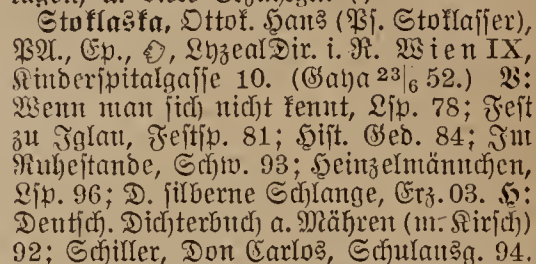 Stoklaska, Ottok. Hans (Ps. Stoklasser),
PA., Ep., LyzealDir. i. R. Wien IX,
Kinderspitalgasse 10. (Gaya 23|6 52.) V:
Wenn man sich nicht kennt, Lsp. 78; Fest
zu Iglau, Festsp. 81; Hist. Ged. 84; Im
Ruhestande, Schw. 93; Heinzelmännchen,
Lsp. 96; D. silberne Schlange, Erz. 03. H:
Deutsch. Dichterbuch a. Mähren (m. Kirsch)
92; Schiller, Don Carlos, Schulausg. 94.